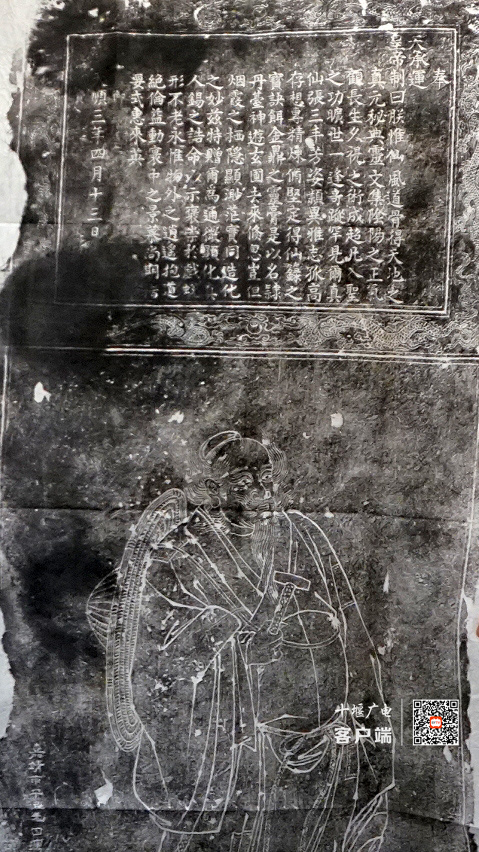 奉
天承運
皇帝制曰朕惟仙風道骨得天地之
真元秘典靈文集陰陽之正氣
顧長生久視之術成超凡入聖
之功曠世一逢奇蹤罕見爾真
仙張三丰芳姿穎異雅志孤高
存想專精煉脩堅定得仙籙之
寶訣餌金鼎之靈膏是以名隸
丹臺神遊玄圃去來倏忽豈但
烟霞之栖隱顯渺茫實同造化
之妙茲特贈爾為通微顯化真
人錫之誥命以示褒崇於戲
形不老永惟物外之逍遙抱道
絕倫益動寰中之景慕尚
惠來英
順三年四月十三日
十堰广电
客户端